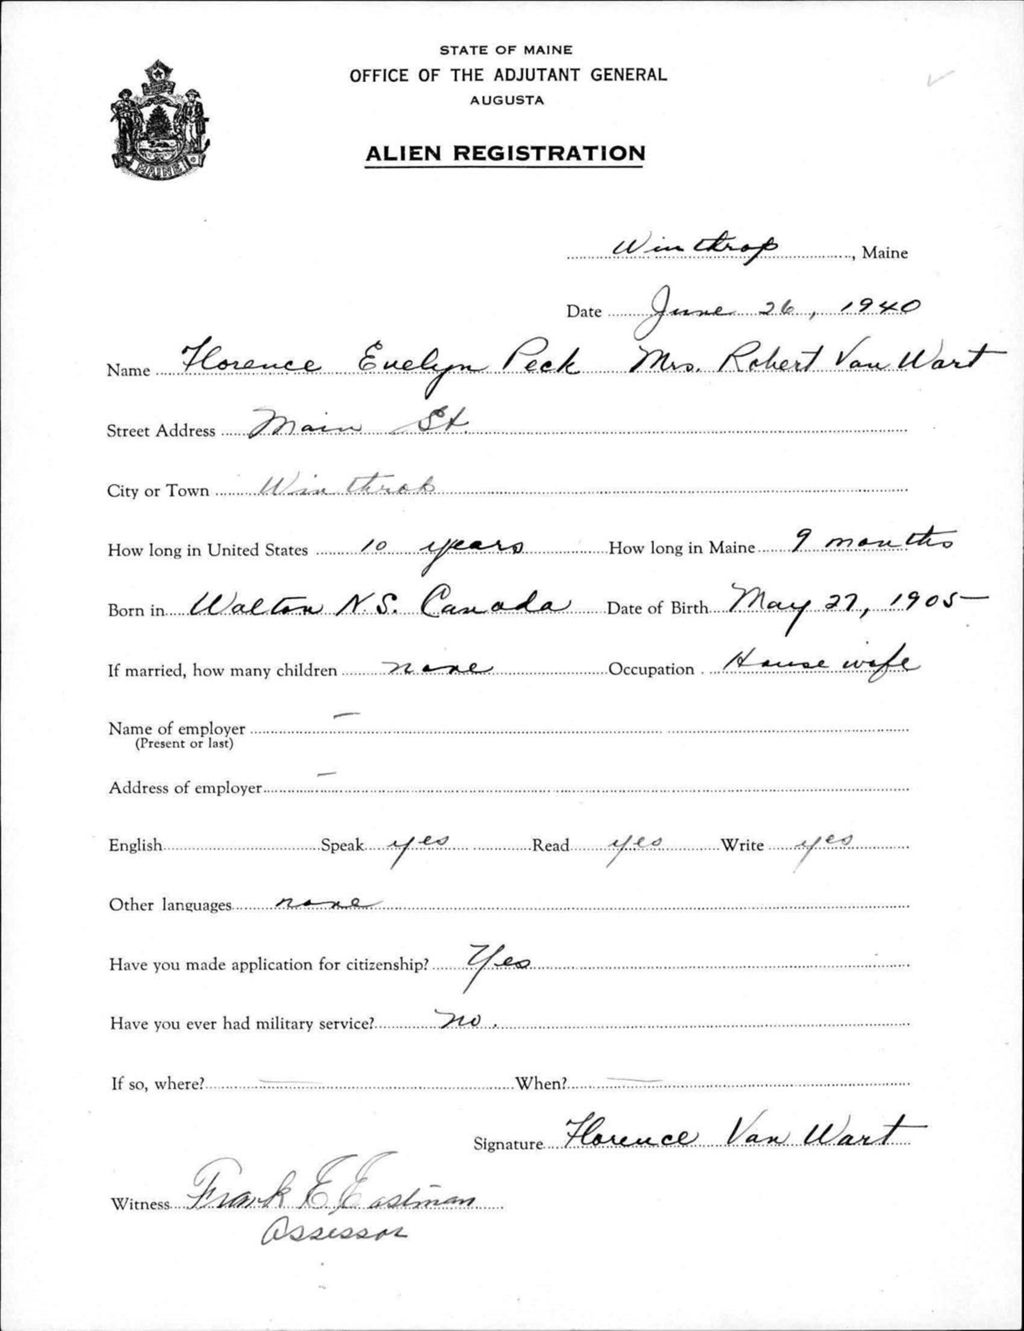 STATE OF MAINE
OFFICE OF THE ADJUTANT GENERAL
AUGUSTA
ALIEN REGISTRATION
MAINE
Winthrop, Maine
Date June 26, 1940
Name Florence Evelyn Peck Mrs. Robert Van Wart
Street Address Main St.
City or Town Winthrop
How long in United States 10 years How long in Maine 9 months
Born in Walton N.S. Canada Date of Birth May 27, 1905
If married, how many children none Occupation House wife
Name of employer —
(Present or last)
Address of employer —
English Speak yes Read yes Write yes
Other languages none
Have you made application for citizenship? Yes
Have you ever had military service? no.
If so, where? — When? —
Signature Florence Van Wart
Witness Frank E Eastman
Assessor